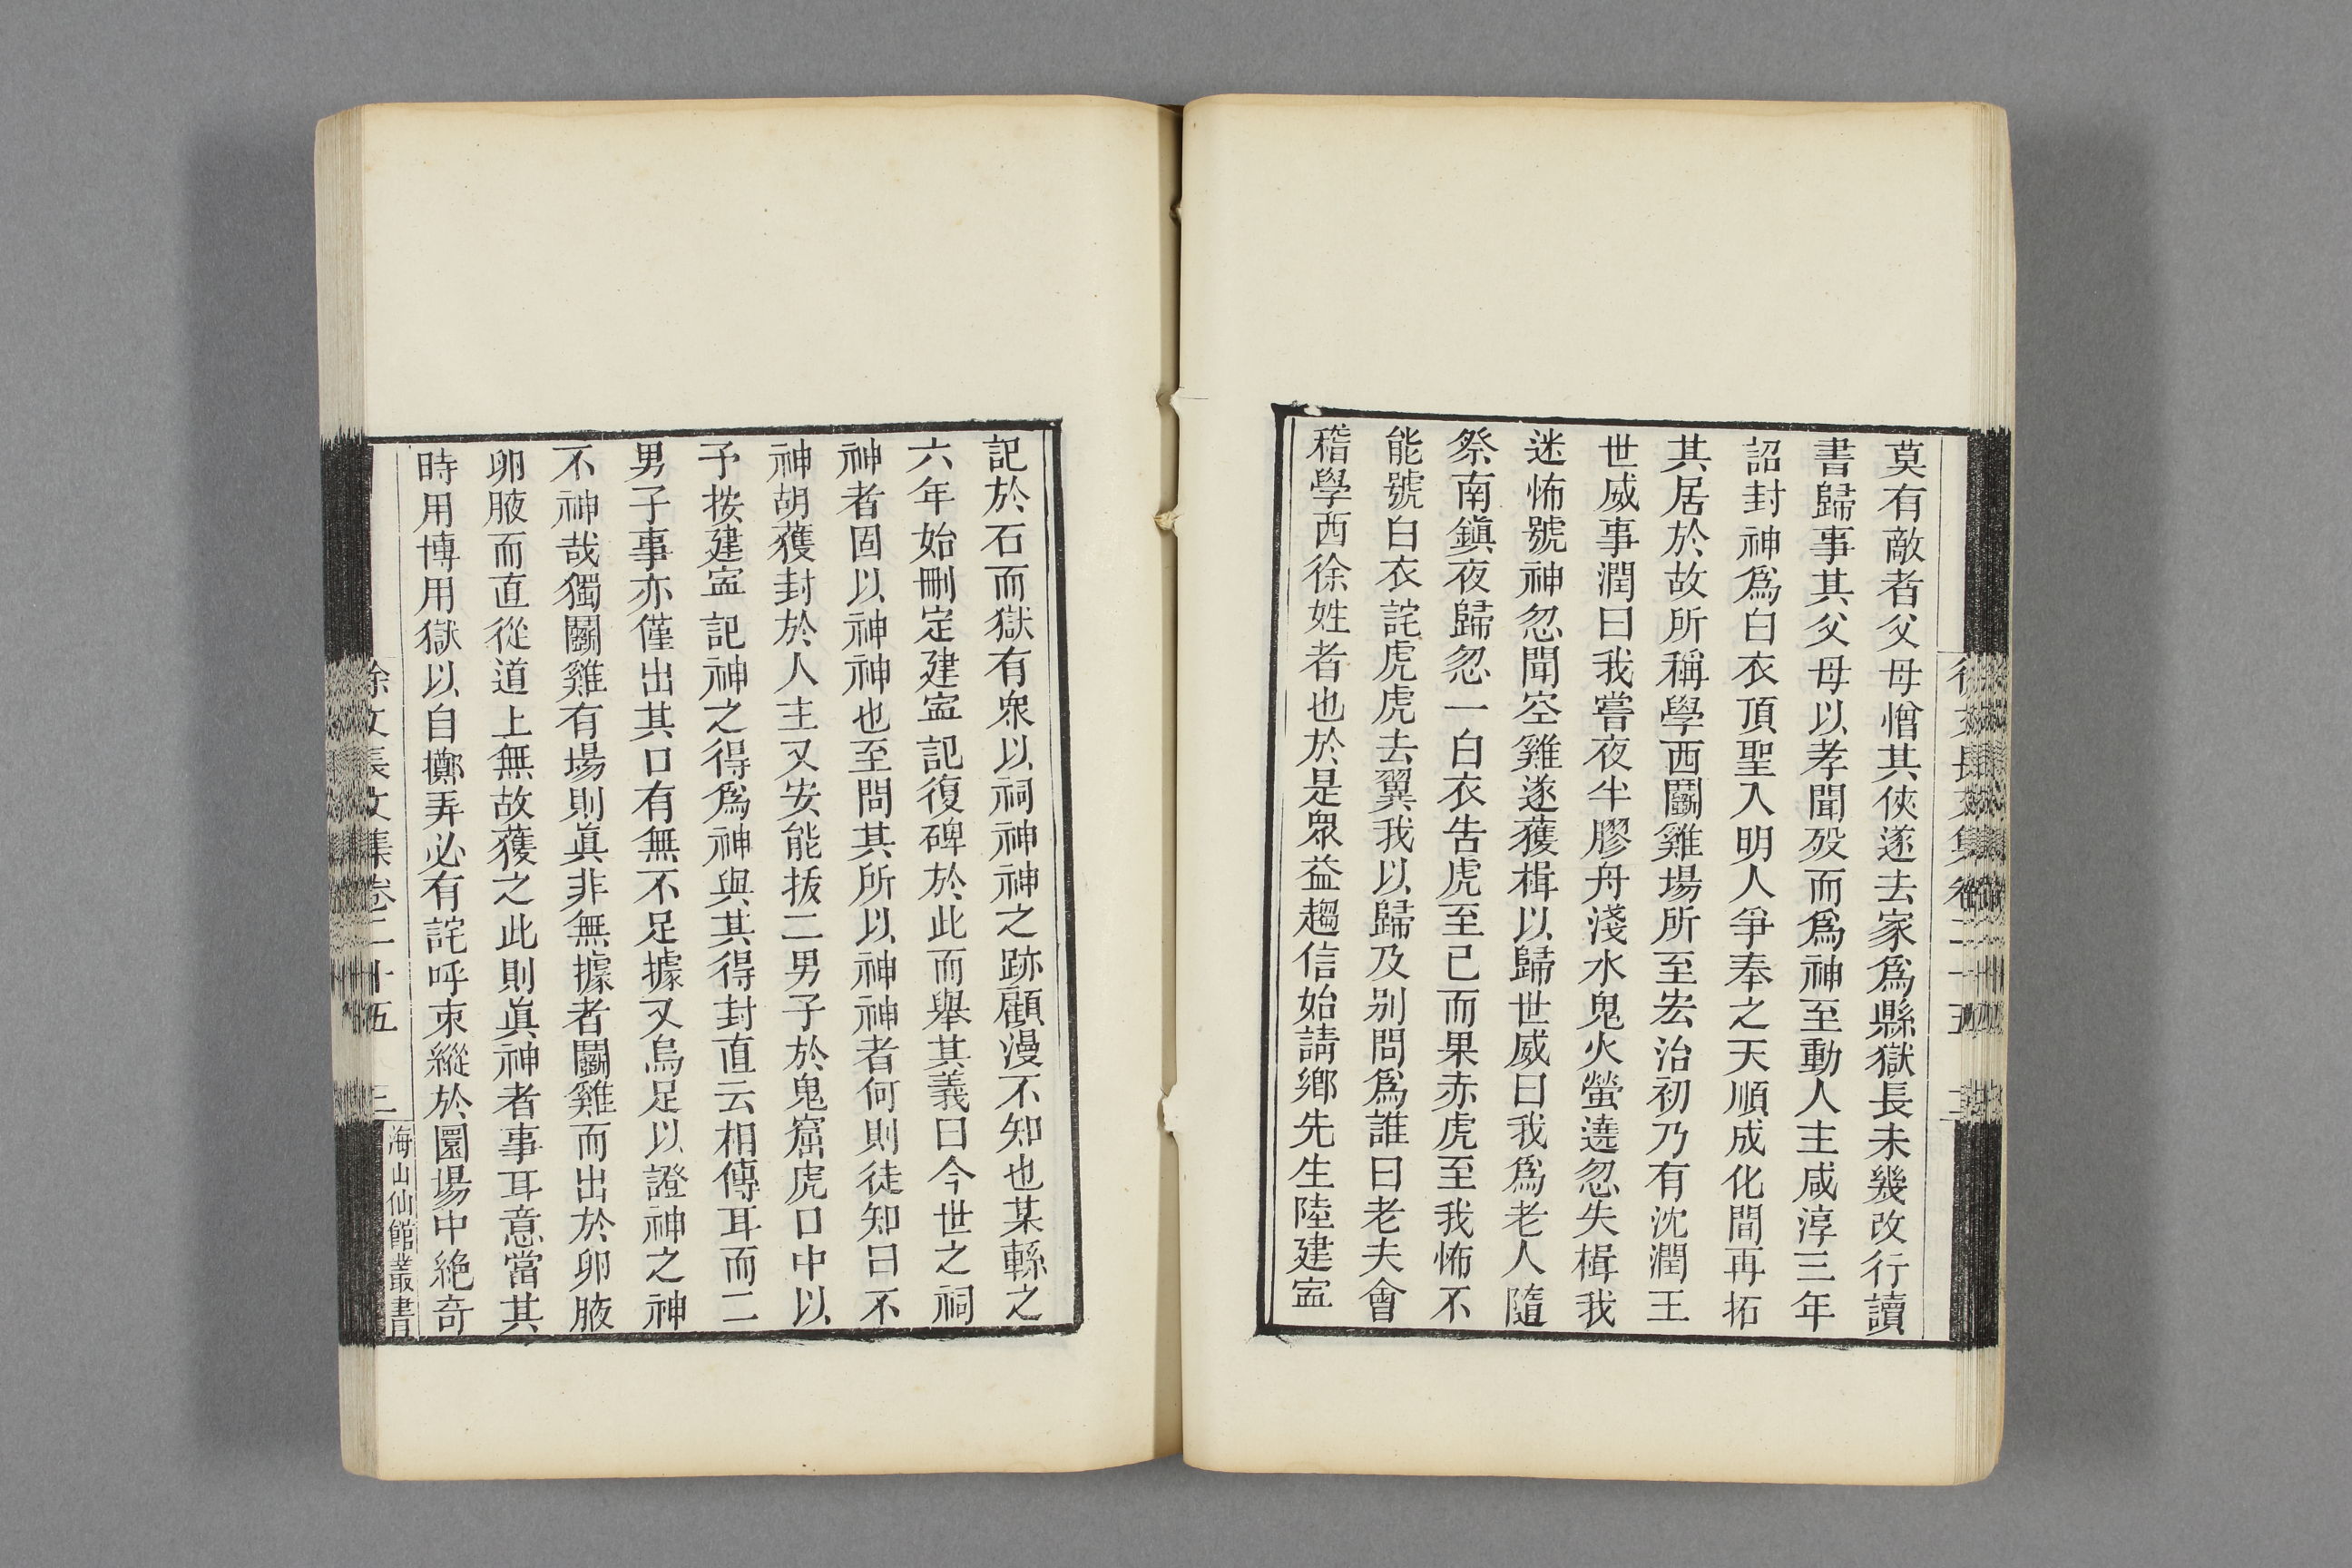 莫有敵者父母憎其俠遂去家爲縣獄長未幾改行讀
書歸事其父母以孝聞歿而爲神至動人主咸淳三年
詔封神爲白衣頂聖入明人爭奉之天順成化間再拓
其居於故所稱學西鬭雞場所至宏治初乃有沈潤王
世威事潤曰我嘗夜半膠舟淺水鬼火螢遶忽失楫我
迷怖號神忽聞空雞遂獲楫以歸世威曰我爲老人隨
祭南鎭夜歸忽一白衣告虎至已而果赤虎至我怖不
能號白衣詫虎虎去翼我以歸及别問爲誰曰老夫會
稽學西徐姓者也於是眾益趨信始請鄉先生陸建寍
記於石而獄有眾以祠神神之跡顧漫不知也某繇之
六年始刪定建寍記復碑於此而舉其義曰今世之祠
神者固以神神也至問其所以神神者何則徒知曰不
神胡獲封於人主又安能扳二男子於鬼窟虎口中以
予按建寍記神之得爲神與其得封直云相傳耳而二
男子事亦僅出其口有無不足據又烏足以證神之神
不神哉獨鬭雞有場則眞非無據者鬭雞而出於卵腋
卵腋而直從道上無故獲之此則眞神者事耳意當其
時用博用獄以自擲弄必有詫呼束縱於圜場中絶奇
徐文長文集卷二十五
三
海山仙館叢書